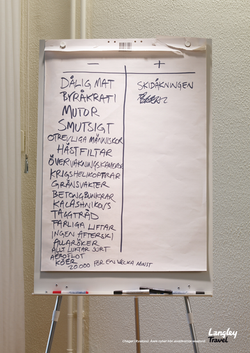 - +
DÅLIG MAT SKIDÅKNINGEN
BYRÅKRATI
MUTOR
SMUTSIGT
OTREVLIGA MÄNNISKOR
HÄSTFILTAR
ÖVERVAKNINGSKAMEROR
KRIGSHELIKOPTRAR
GRÄNSVAKTER
BETONGBUNKRAR
KALASHNIKOVS
TAGGTRÅD
FARLIGA LIFTAR
INGEN AFTERSKI
ALLA RÖKER
ALLT LUKTAR SURT
AEROFLOT
KÖER
20 000 FÖR EN VECKA MINST
Langley
Travel